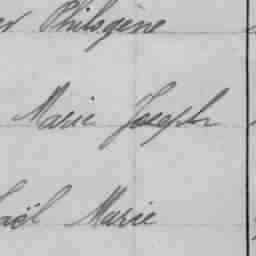 Philogène
Marie Joseph
Marie